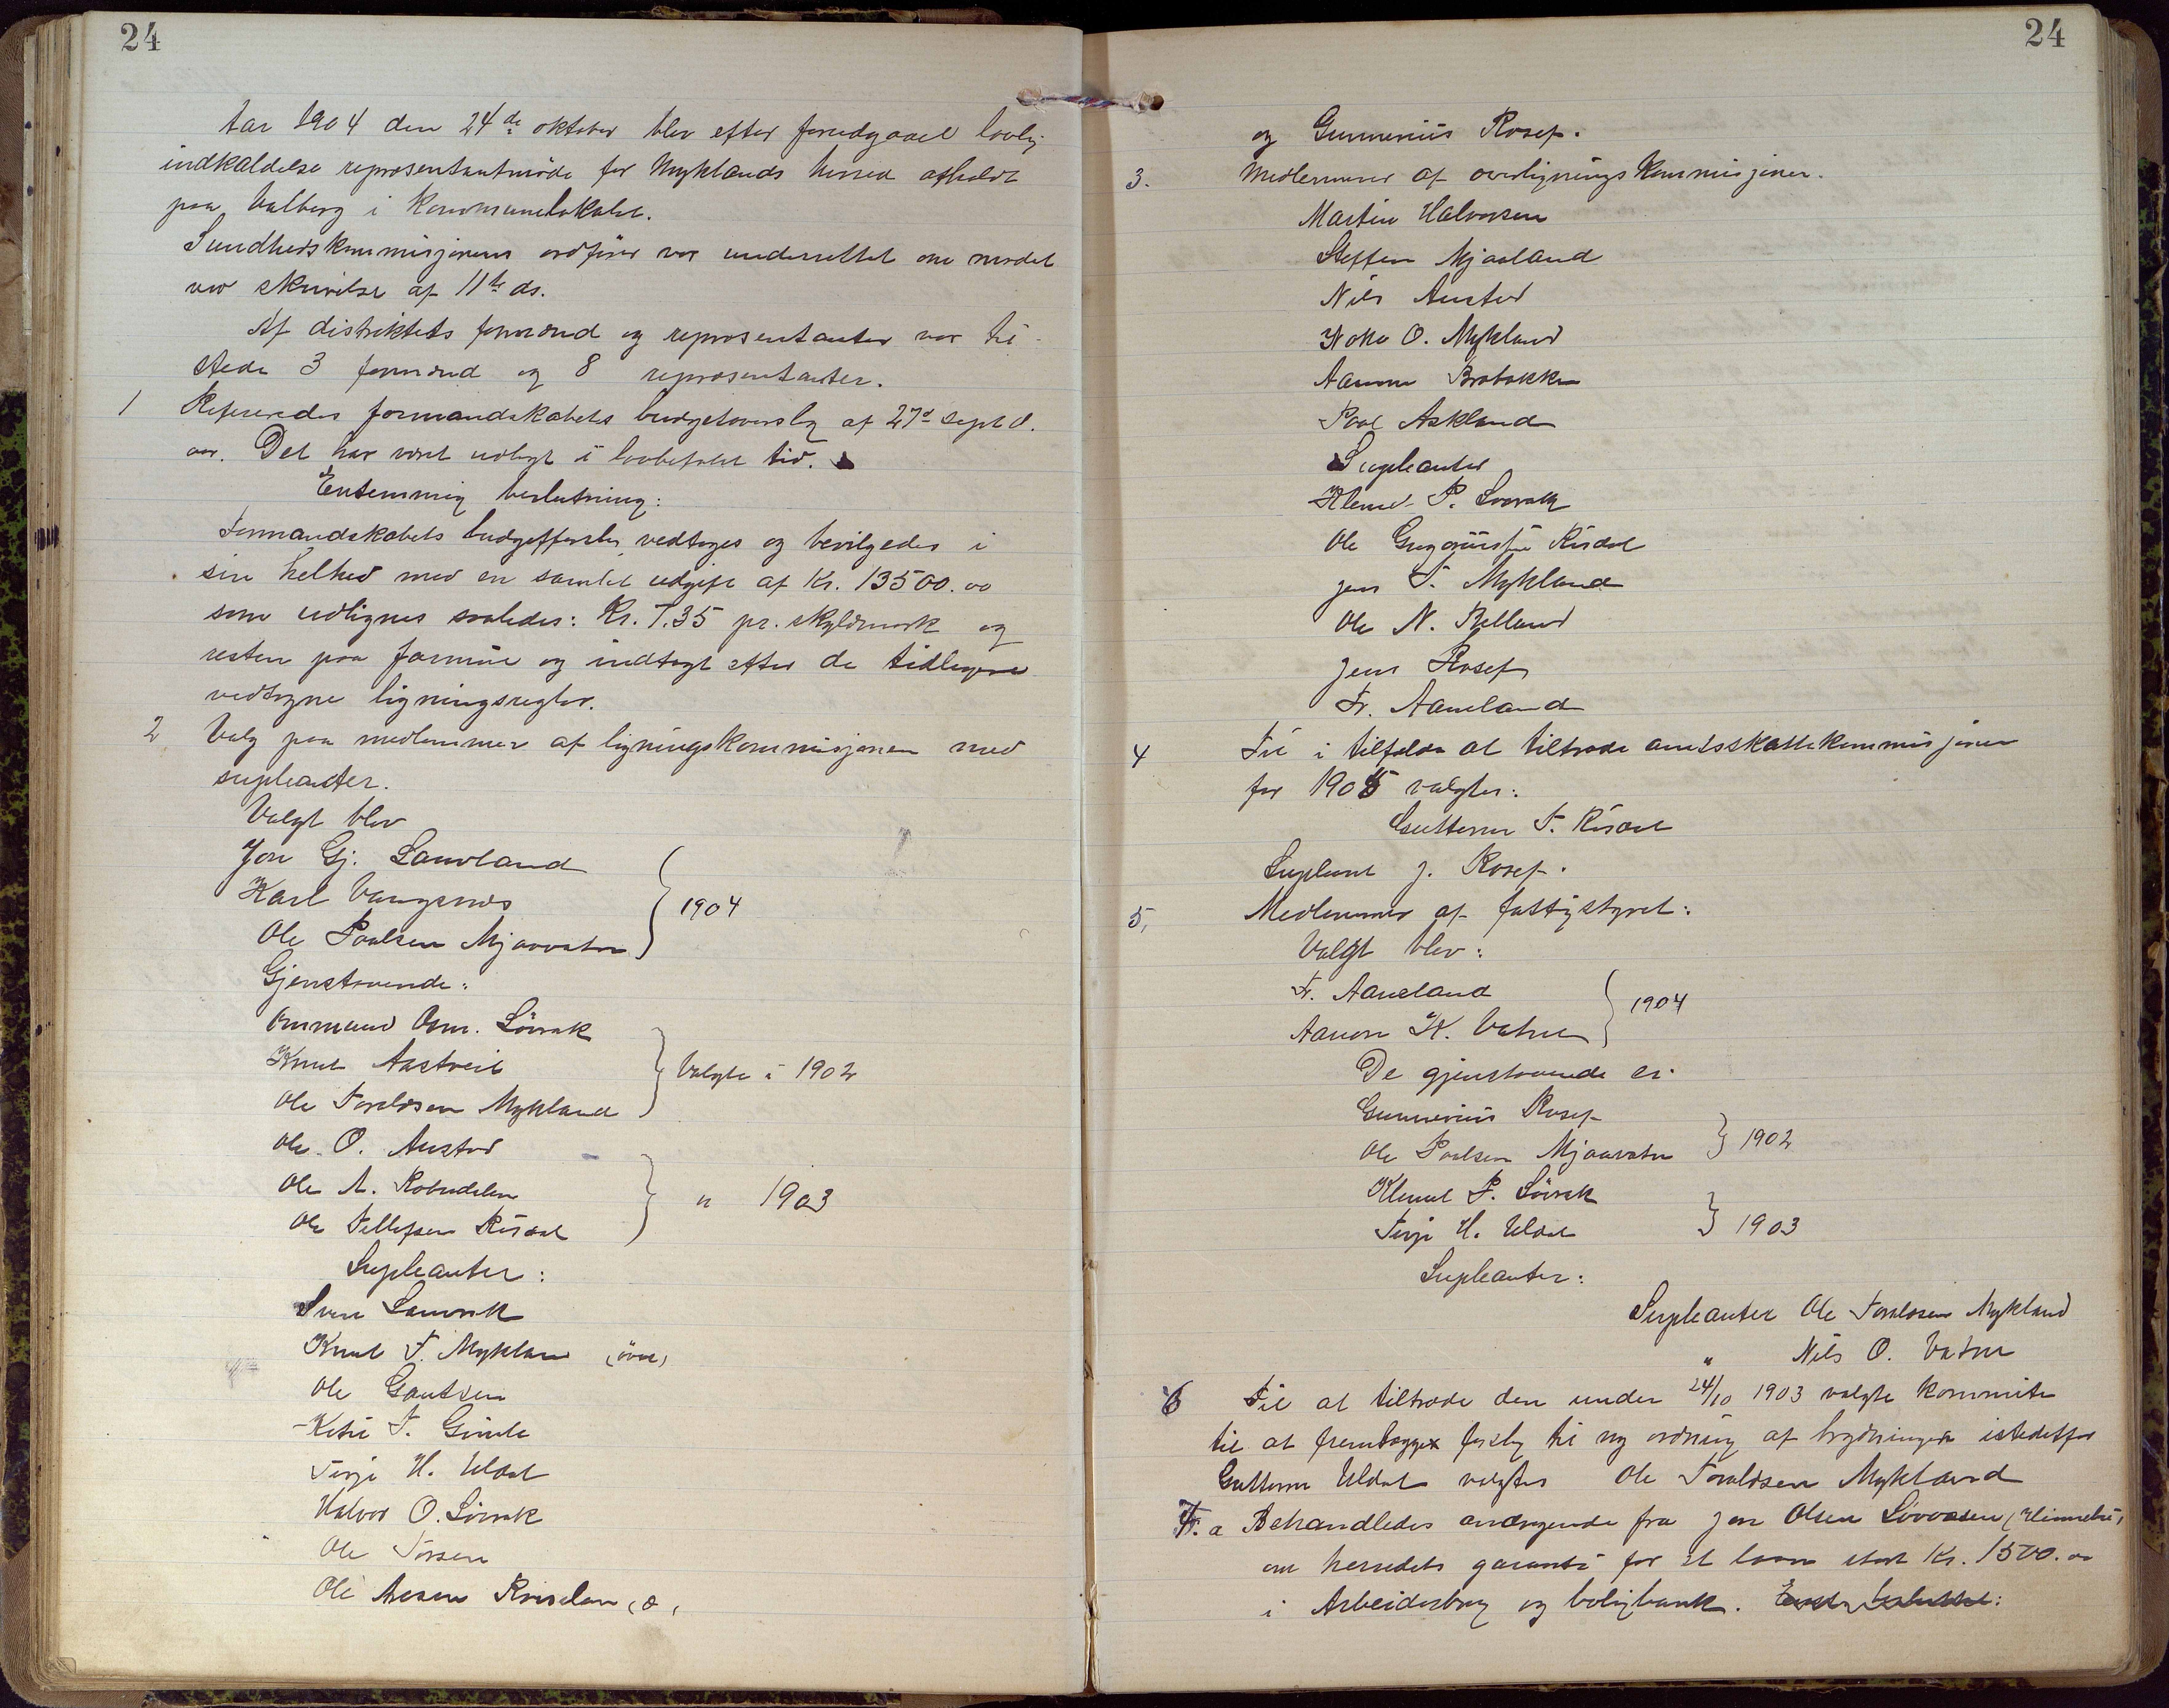 24
Aar 1904 den 24de oktober blev efter forudgaael lovlig
indkaldelse repræsentantmöde for Myklands herred afholdt
paa Valberg i Kommunelokalet.
Sundhedskommisjonens ordförer var underrettet om mödet
ved skrivelse af 11te ds.
Af distriktets formænd og repræsentanter var til-
stede 3 formænd og 8 repræsentanter.
1 Refereredes formandskabets budgetoverslag af 27de sept d.
aar. Det har været udlagt i lovbefalet tid.
Enstemmig beslutning:
Formandskabets budgetforslag vedtages og bevilgedes i
sin helhed med en samlet udgift af Kr. 13500.00
som udlignes saaledes: Kr. 7.35 pr. skyldmark og
resten paa formue og indtægt efter de tidligere
vedtagne ligningsregler.
2 Valg paa medlemmer af ligningskommisjonen med
supleanter.
Valgt blev
Jon Gj. Lauvland
Karl Vangsnes
Ole Paalsen Mjaavatn } 1904
Gjenstaaende:
Ommund Osm. Lövrak
Knut Aastveit
Ole Toraldsen Mykland } Valgte i 1902
Ole O. Austad
Ole A. Robudalen
Ole Tellefsen Risdal } " 1903
Supleanter:
Sven Lauvrak
Knut T. Mykland (övre)
Ole Gautsen
Ketil T. Gimle
Terje H. Uldal
Halvor O. Lövrak
Ole Torsen
Ole Aasen (ø,
24
og Gunnerius Rosef.
3. Medlemmer af overligningskommisjonen.
Martin Halvorsen
Steffen Mjaaland
Nils Austad
O. Mykland
Aanon Brobakken
Paal Askland
Supleanter
Klemet P. Lövrak
Ole Gregoriussen Risdal
Jens T. Mykland
Ole N. Belland
Jens Rosef
Fr. Aaneland
4 Til i tilfælde at tiltræde amtsskattekommisjonen
for 1905 valgtes:
Guttorm T. Risdal
Supleant J. Rosef.
5, Medlemmer af fattigstyret:
Valgt blev:
Fr. Aaneland
Aanon K. Vatne } 1904
De gjenstaaende er:
Gunnerius Rosef
Ole Paalsen Mjaavatn } 1902
Klemet P. Lövrak
Terje H. Uldal } 1903
Supleanter:
Supleanter Ole Toraldsen Mykland
" Nils O. Vatne
6 Til at tiltræde den under 24/10 1903 valgte kommite
til at fremlægge forslag til ny ordning af brydningen istedetfor
Guttorm Uldal valgtes Ole Toraldsen Mykland
7. a Behandledes andragende fra Jon Olsen Lövaasen (Himmelsi,
om herredets garanti for et laan stort Kr. 1500.00
i Arbeiderbrug og boligbank. Enst. besluttet: